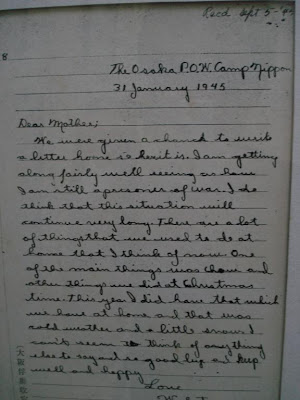 Recd Sept 5-'45
8
The Osaka P.O.W. Camp Nippon
31 January 1945
Dear Mother;
We were given a chance to write
a letter home so here it is. I am getting
along fairly well seeing as how
I am still a persorner of war. I do
think that this situation will
continue very long. There are a lot
of things that we used to do at
home that I think of now. One
of the main things was chow and
other things we did at Christmas
time. This year I did have that which
we have at home and that was
cold weather and a little snow. I
can't seem to think of anything
else to say and so good by and keep
well and happy
Love